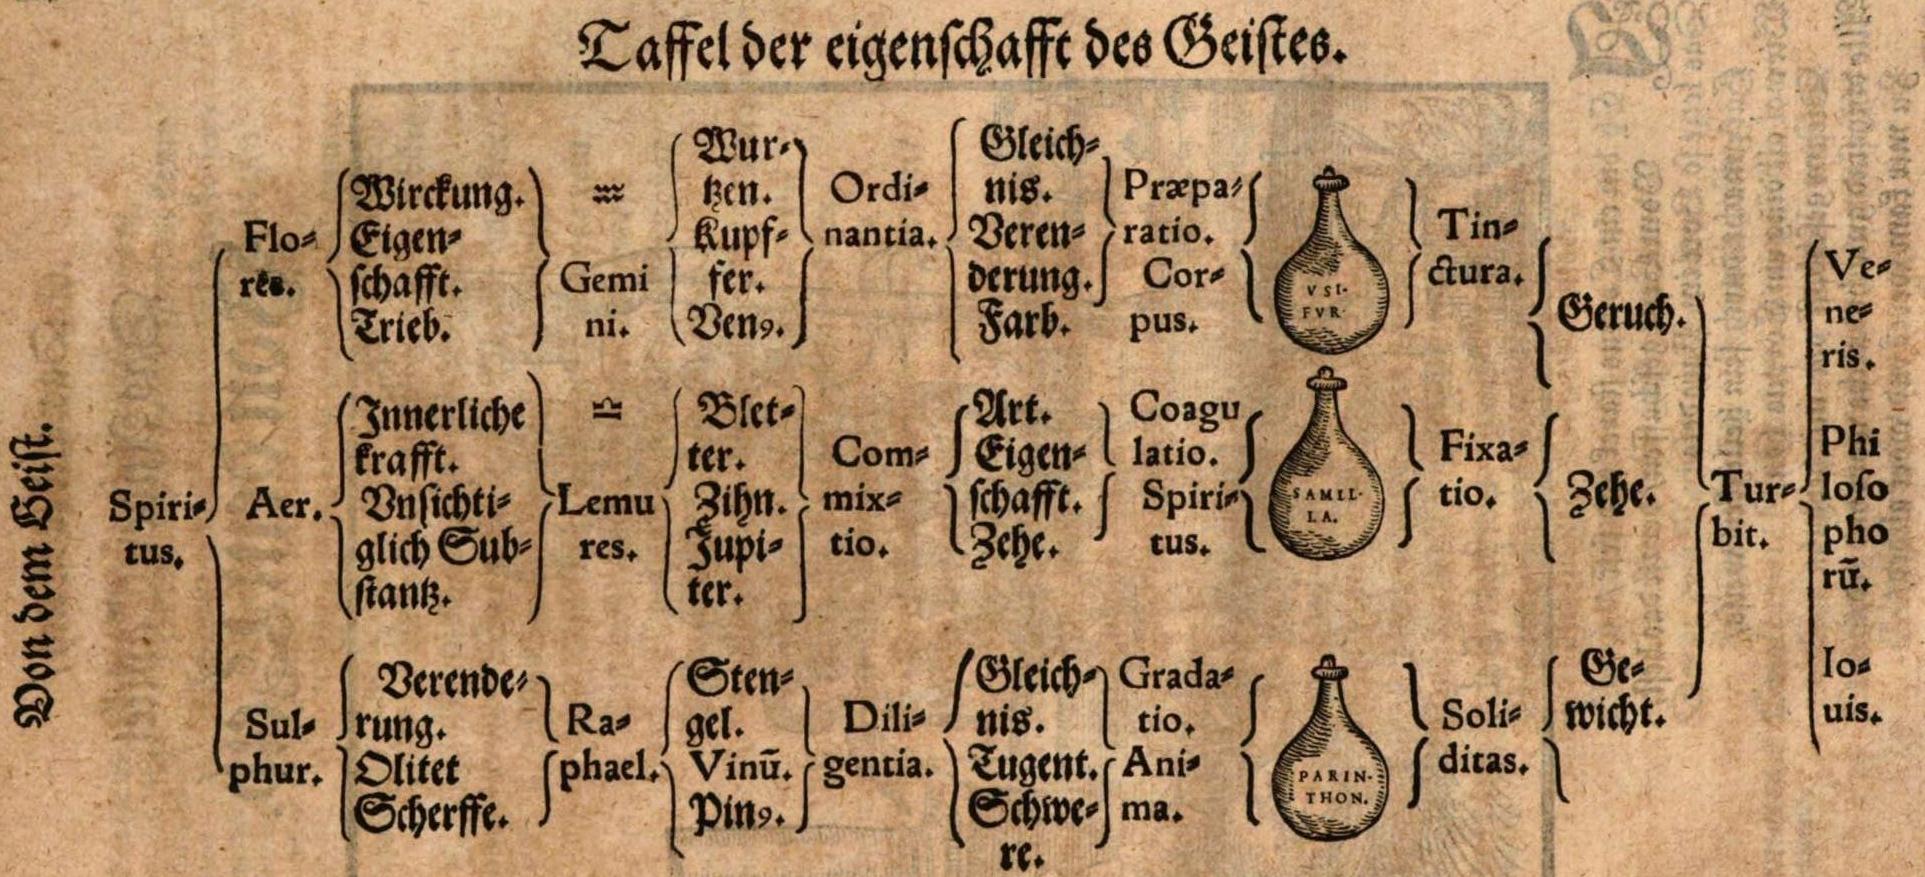 Taffel der eigenſchafft des Geiſtes.
Von dem Geiſt.
Spiri⸗
tus.
Flo⸗
res.
Wirckung.
Eigen⸗
ſchafft.
Trieb.
♒
Gemi
ni.
Wur⸗
tzen.
Kupf⸗
fer.
Venꝰ.
Ordi⸗
nantia.
Gleich⸗
nis.
Veren⸗
derung.
Farb.
Præpa⸗
ratio.
Cor⸗
pus.
VSI⸗
FVR
Tin⸗
ctura.
Geruch.
Aer.
Innerliche
krafft.
Vnſichti⸗
glich Sub⸗
ſtantz.
♎
Lemu
res.
Blet⸗
ter.
Zihn.
Jupi⸗
ter.
Com⸗
mix⸗
tio.
Art.
Eigen⸗
ſchafft.
Zehe.
Coagu
latio.
Spiri⸗
tus.
SAMIL⸗
LA.
Fixa⸗
tio.
Zehe.
Sul⸗
phur.
Verende⸗
rung.
Olitet
Scherffe.
Ra⸗
phael.
Sten⸗
gel.
Vinū.
Pinꝰ.
Dili⸗
gentia.
Gleich⸗
nis.
Tugent.
Schwe⸗
re.
Grada⸗
tio.
Ani⸗
ma.
PARIN⸗
THON.
Soli⸗
ditas.
Ge⸗
wicht.
Tur⸗
bit.
Ve⸗
ne⸗
ris.
Phi
loſo
pho
rū.
Io⸗
uis.